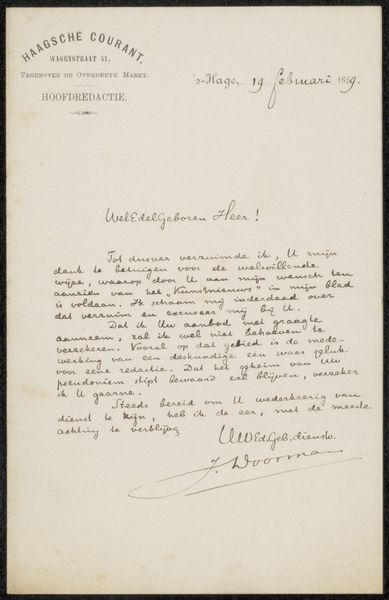 HAAGSCHE COURANT.
WAGENSTRAAT 51,
TEGENOVER DE OVERDEKTE MARKT.
HOOFDREDACTIE.
's-Hage, 19 februari 1889.
WelEdelGeboren Heer!
Tot dusver verzuimde ik, U mijn
dank te betuigen voor de welwillende
wijze, waarop door U aan mijn wensch ten
aanzien van het "Kunstnieuws" in mijn blad
is voldaan. Ik schaam mij inderdaad over
dat verzuim en excuseer mij bij U.
Dat ik Uw aanbod met graagte
aanneem, zal ik wel niet behoeven te
verzekeren. Vooral op dat gebied is de mede-
werking van een deskundige een waar geluk
voor eene redactie. Dat het geheim van Uw
pseudoniem stipt bewaard zal blijven, verzeker
ik U gaarne.
Steeds bereid om U wederkeerig van
dienst te zijn, heb ik de eer, met de meeste
achting te verblijven
UWEd.Geb. dienstw.
J. Doorman